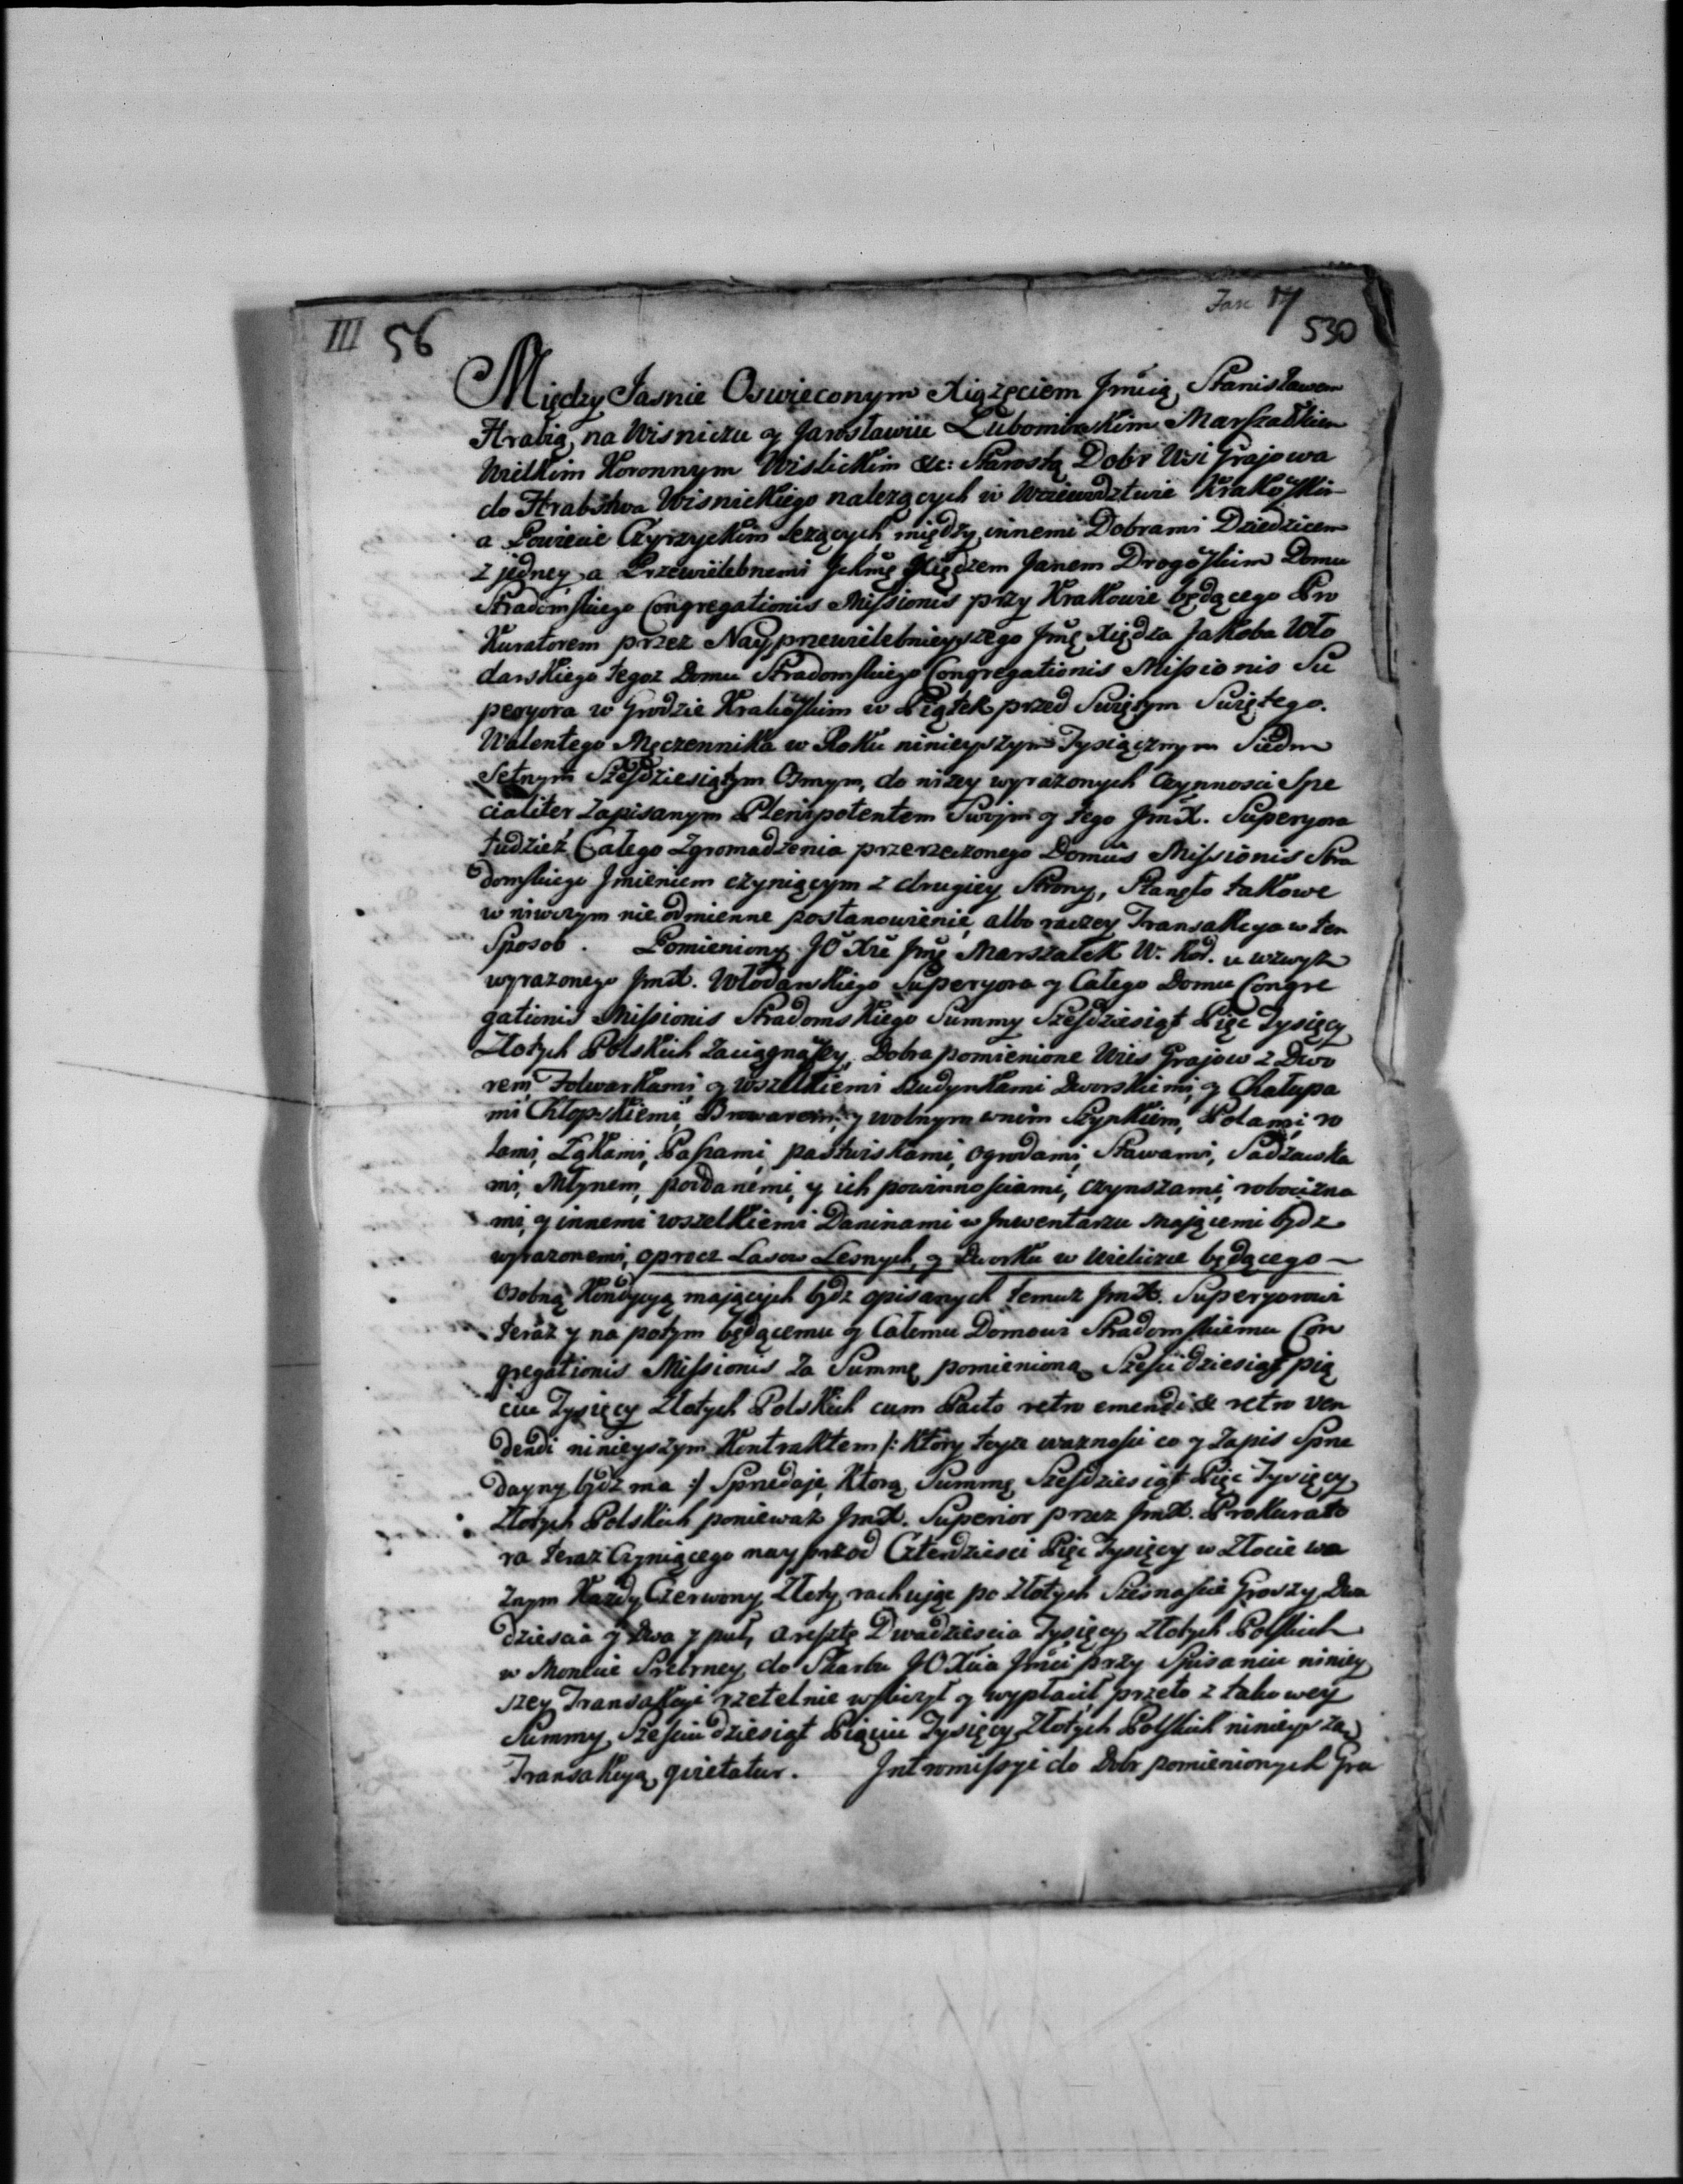 III 56
Fasc 17
530
Między Jasnie Oswieconym Xiązęciem Jmcią Stanisławem
Hrabią na Wisniczu y Jarosławiu Lubomirskim Marszałkiem
Wielkim Koronnym Wislickim &c: Starostą Dobr Wsi Grajowa
do Hrabstwa Wisnickiego nalezących w Woiewodztwie Krakowskim
a Powiecie Czyrzyckim lezących między innemi Dobrami Dziedzicem
z jedney, a Przewielebnemi Jchmę Xiędzem Janem Drogoskim Domu
Stradomskiego Congregationis Missionis przy Krakowie będącego Pro
Kuratorem przez Nayprzewielebnieyszego Jmę Xiędza Jakoba Wło
darskiego tegoz Domu Stradomskiego Congregationis Missionis Su
peryora w Grodzie Krakowskim w Piątek przed Swiętym Swiętego
Walentego Męczennika w Roku ninieyszym Tysiącznym Siedm
Setnym Sześdziesiątym Osmym, do nizey wyrazonych czynnosci Spe
cialiter zapisanym Plenipotentem Swojm y tego JmX. Superyora
tudziez Całego Zgromadzenia przerzeczonego Domus Missionis Stra
domskiego Jmieniem czyniącym z drugiey Strony, Stanęło takowe
w niwczym nie odmienne postanowienie, albo raczey Transakcya w ten
Sposob. Pomieniony JO Xże Jmę Marszałek W. Kor. u wzwyz
wyrazonego JmX. Włodarskiego Superyora y Całego Domu Congre
gationis Missionis Stradomskiego Summy Sześdziesiąt Pięc Tysięcy
Złotych Polskich zaciągnąwszy, Dobra pomienione Wies Grajow z Dwo
rem, Folwarkami, y wszelkiemi Budynkami Dworskiemi, y Chałupa
mi Chłopskiemi, Browarem, y wolnym wnim Szynkiem, Polami, ro
lami, Łąkami, Paszami, pastwiskami, ogrodami, Stawami, Sadzawka
mi, Młynem, poddanemi, y ich powinnościami, czynszami, robocizna
mi, y innemi wszelkiemi Daninami w Jnwentarzu mającemi bydz
wyrazonemi, oprocz Lasow Lesnych, y Dworku w Wieliczce będącego
osobną Kondycyą mających bydz opisanych temuz JmX. Superyorowi
teraz y na potym będącemu y Całemu Domowi Stradomskiemu Con
gregationis Missionis za Summę pomienioną Sześciudziesiąt pią
ciu Tysięcy Złotych Polskich cum Pacto retro emendi & retro ven
dendi ninieyszym Kontraktem /: Ktory teyze waznosci co y Zapis Sprze
dayny bydz ma :/ Sprzedaje, Ktorą Summę Sześdziesiąt Pięc Tysięcy
Złotych Polskich poniewaz JmX. Superior przez JmX. Prokurato
ra teraz Czyniącego nayprzod Czterdziesci Pięc Tysięcy w Złocie wa
znym Kazdy Czerwony Złoty rachując po Złotych Szesnascie Groszy Dwa
dziescia y Dwa y puł, a resztę Dwadziescia Tysięcy Złotych Polskich
w Monecie Srebrney do Skarbu JOXcia Jmci przy Spisaniu niniey
szey Transakcyi rzetelnie wyliczył y wypłacił, przeto z takowey
Summy Sześciudziesiąt Piąciu Tysięcy Złotych Polskich ninieyszą
Transakcyą qvietatur. Jntromissyi do Dobr pomienionych Gra